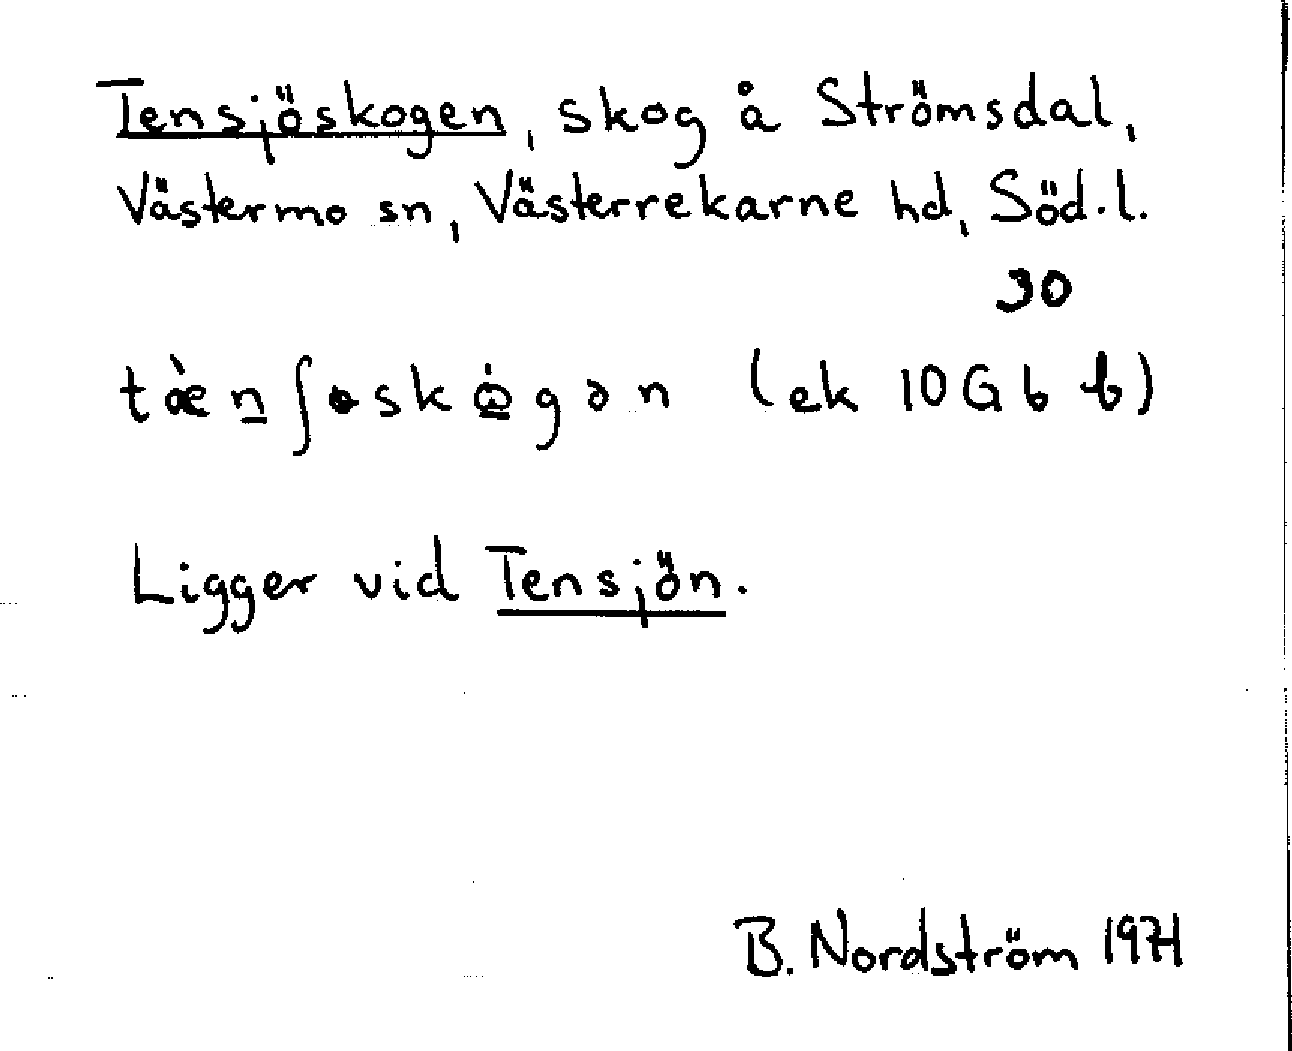 Tensjöskogen, skog å Strömsdal,
Västermo sn, Västerrekarne hd, Söd.l.
30
(ek 10G b b)
Ligger vid Tensjön.
B. Nordström 1971